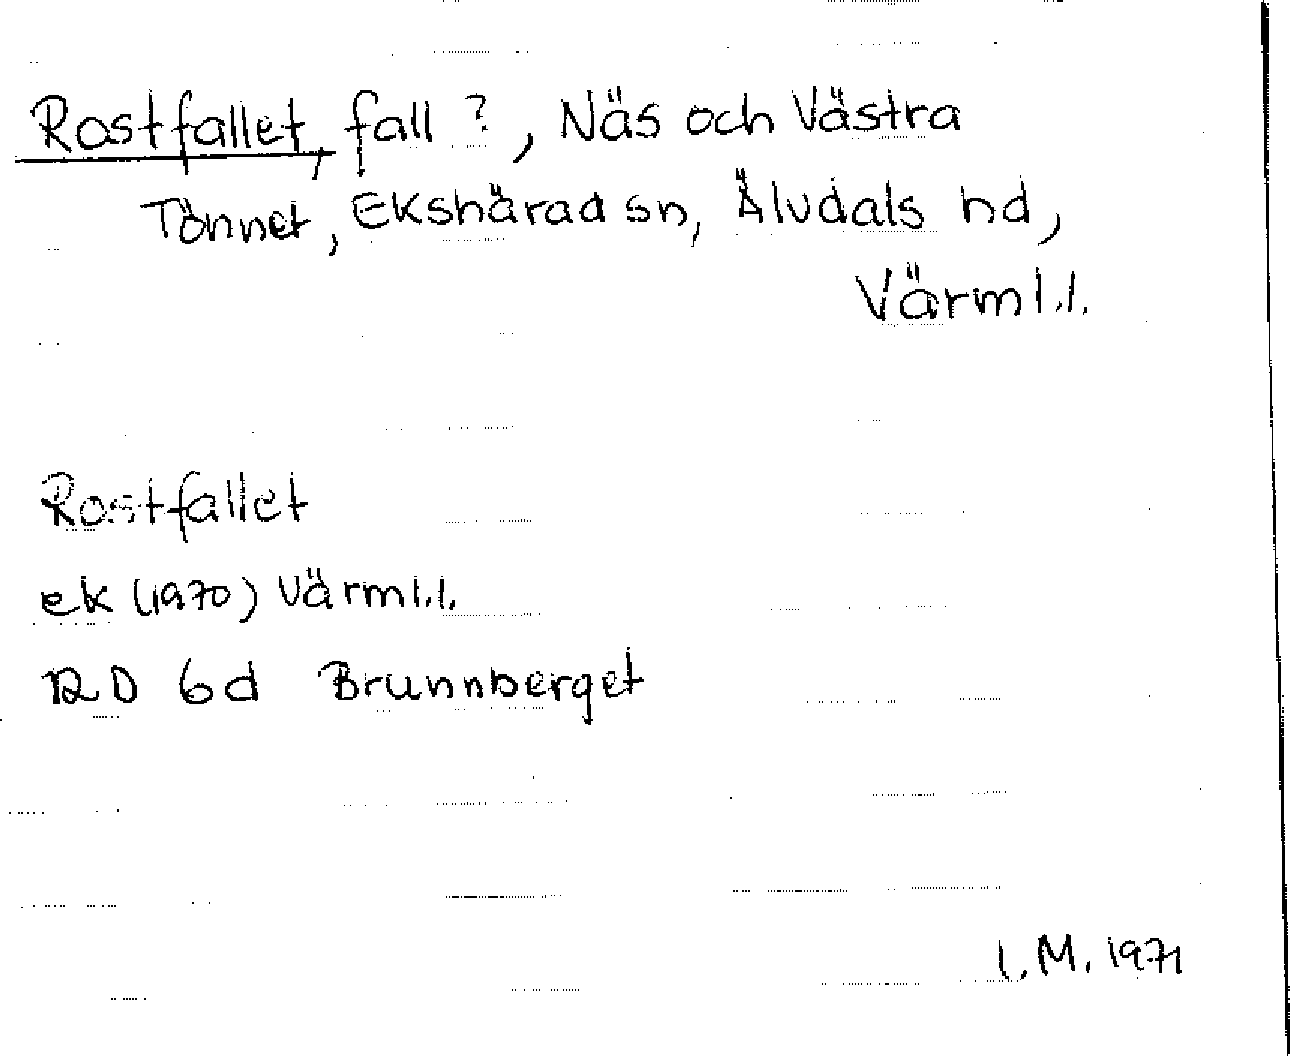 Rostfallet, fall ?, Näs och Västra
Tönnet, Ekshärad sn, Älvdals hd,
Värml.l.
Rostfallet
ek (1970) Värml.l.
12D 6d Brunnberget
I.M. 1971